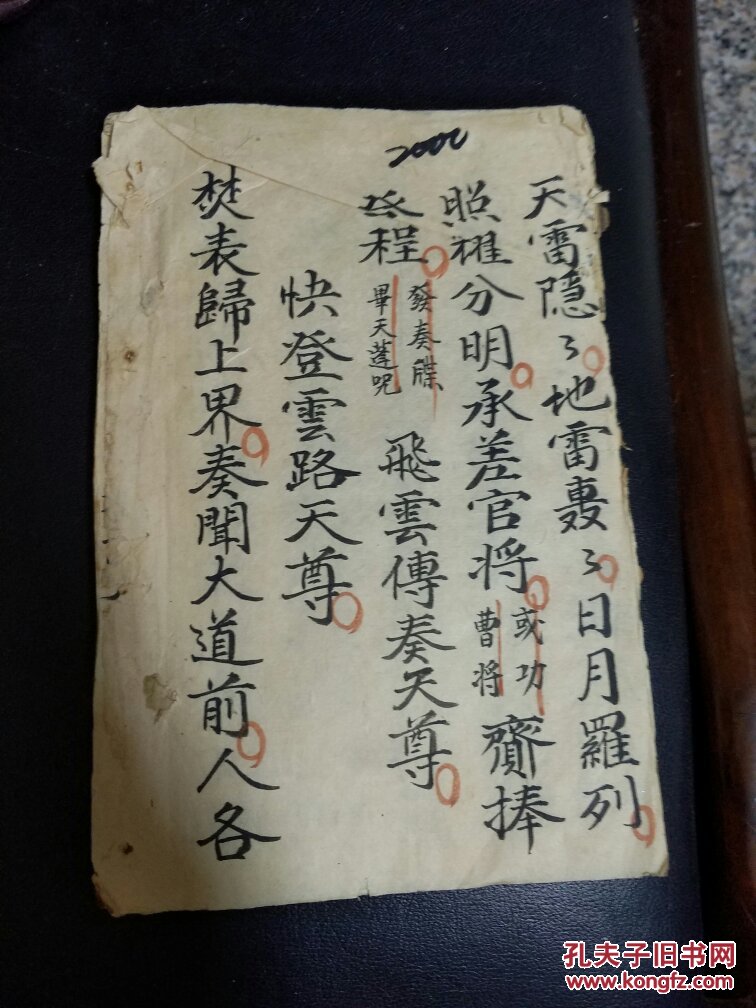 2000
天雷隱々地雷轟々日月羅列
照耀分明承差官將或功曹將齎捧
登程發奏牒畢天蓬咒飛雲傳奏天尊
快登雲路天尊
焚表歸上界奏聞大道前人各
孔夫子旧书网
www.kongfz.com